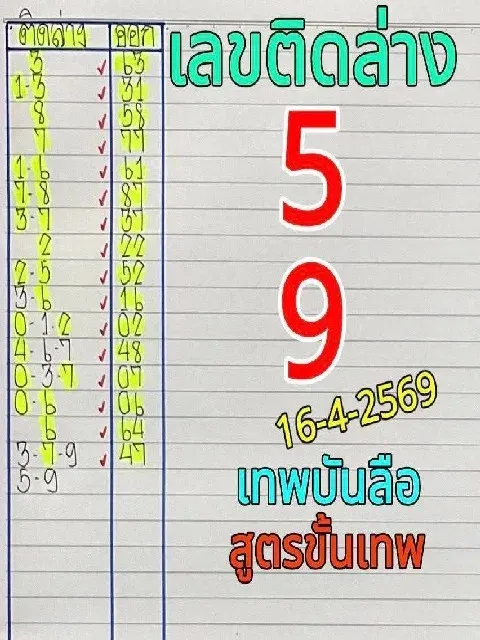 ติดล่าง ออก
3 ✓ 63
1-3 ✓ 31
8 ✓ 58
7 ✓ 77
1-6 ✓ 61
7-8 ✓ 87
3-7 ✓ 37
2 ✓ 22
2-5 ✓ 52
3-6 ✓ 16
0-1-2 ✓ 02
4-6-7 ✓ 48
0-3-7 ✓ 07
0-6 ✓ 06
6 ✓ 64
3-7-9 ✓ 47
5-9
เลขติดล่าง
5
9
16-4-2569
เทพบันลือ
สูตรขั้นเทพ